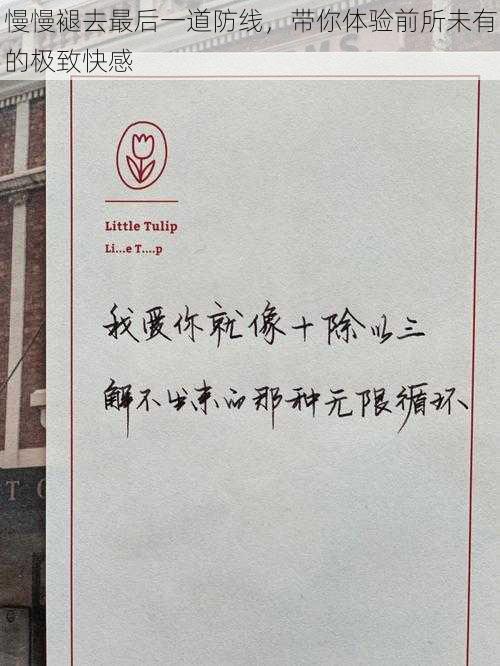 慢慢褪去最后一道防线，带你体验前所未有
的极致快感
Little Tulip
Li...e T....p
我爱你就像十除以三
解不出来的那种无限循环